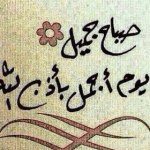 صباح جميل
يوم أجمل بأذن الله